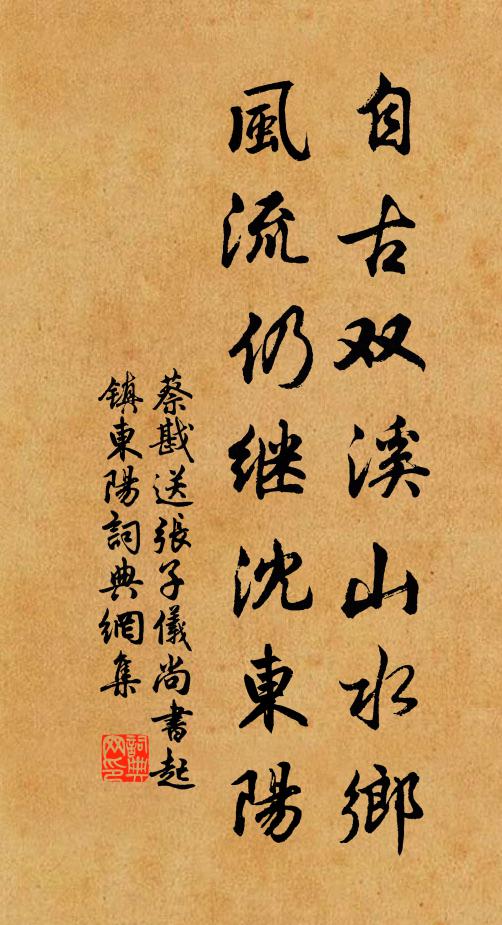 自古双溪山水鄉
風流仍继沈東陽
蔡戡送張子儀尚書起
鎮東陽詞典網集
詞典网印